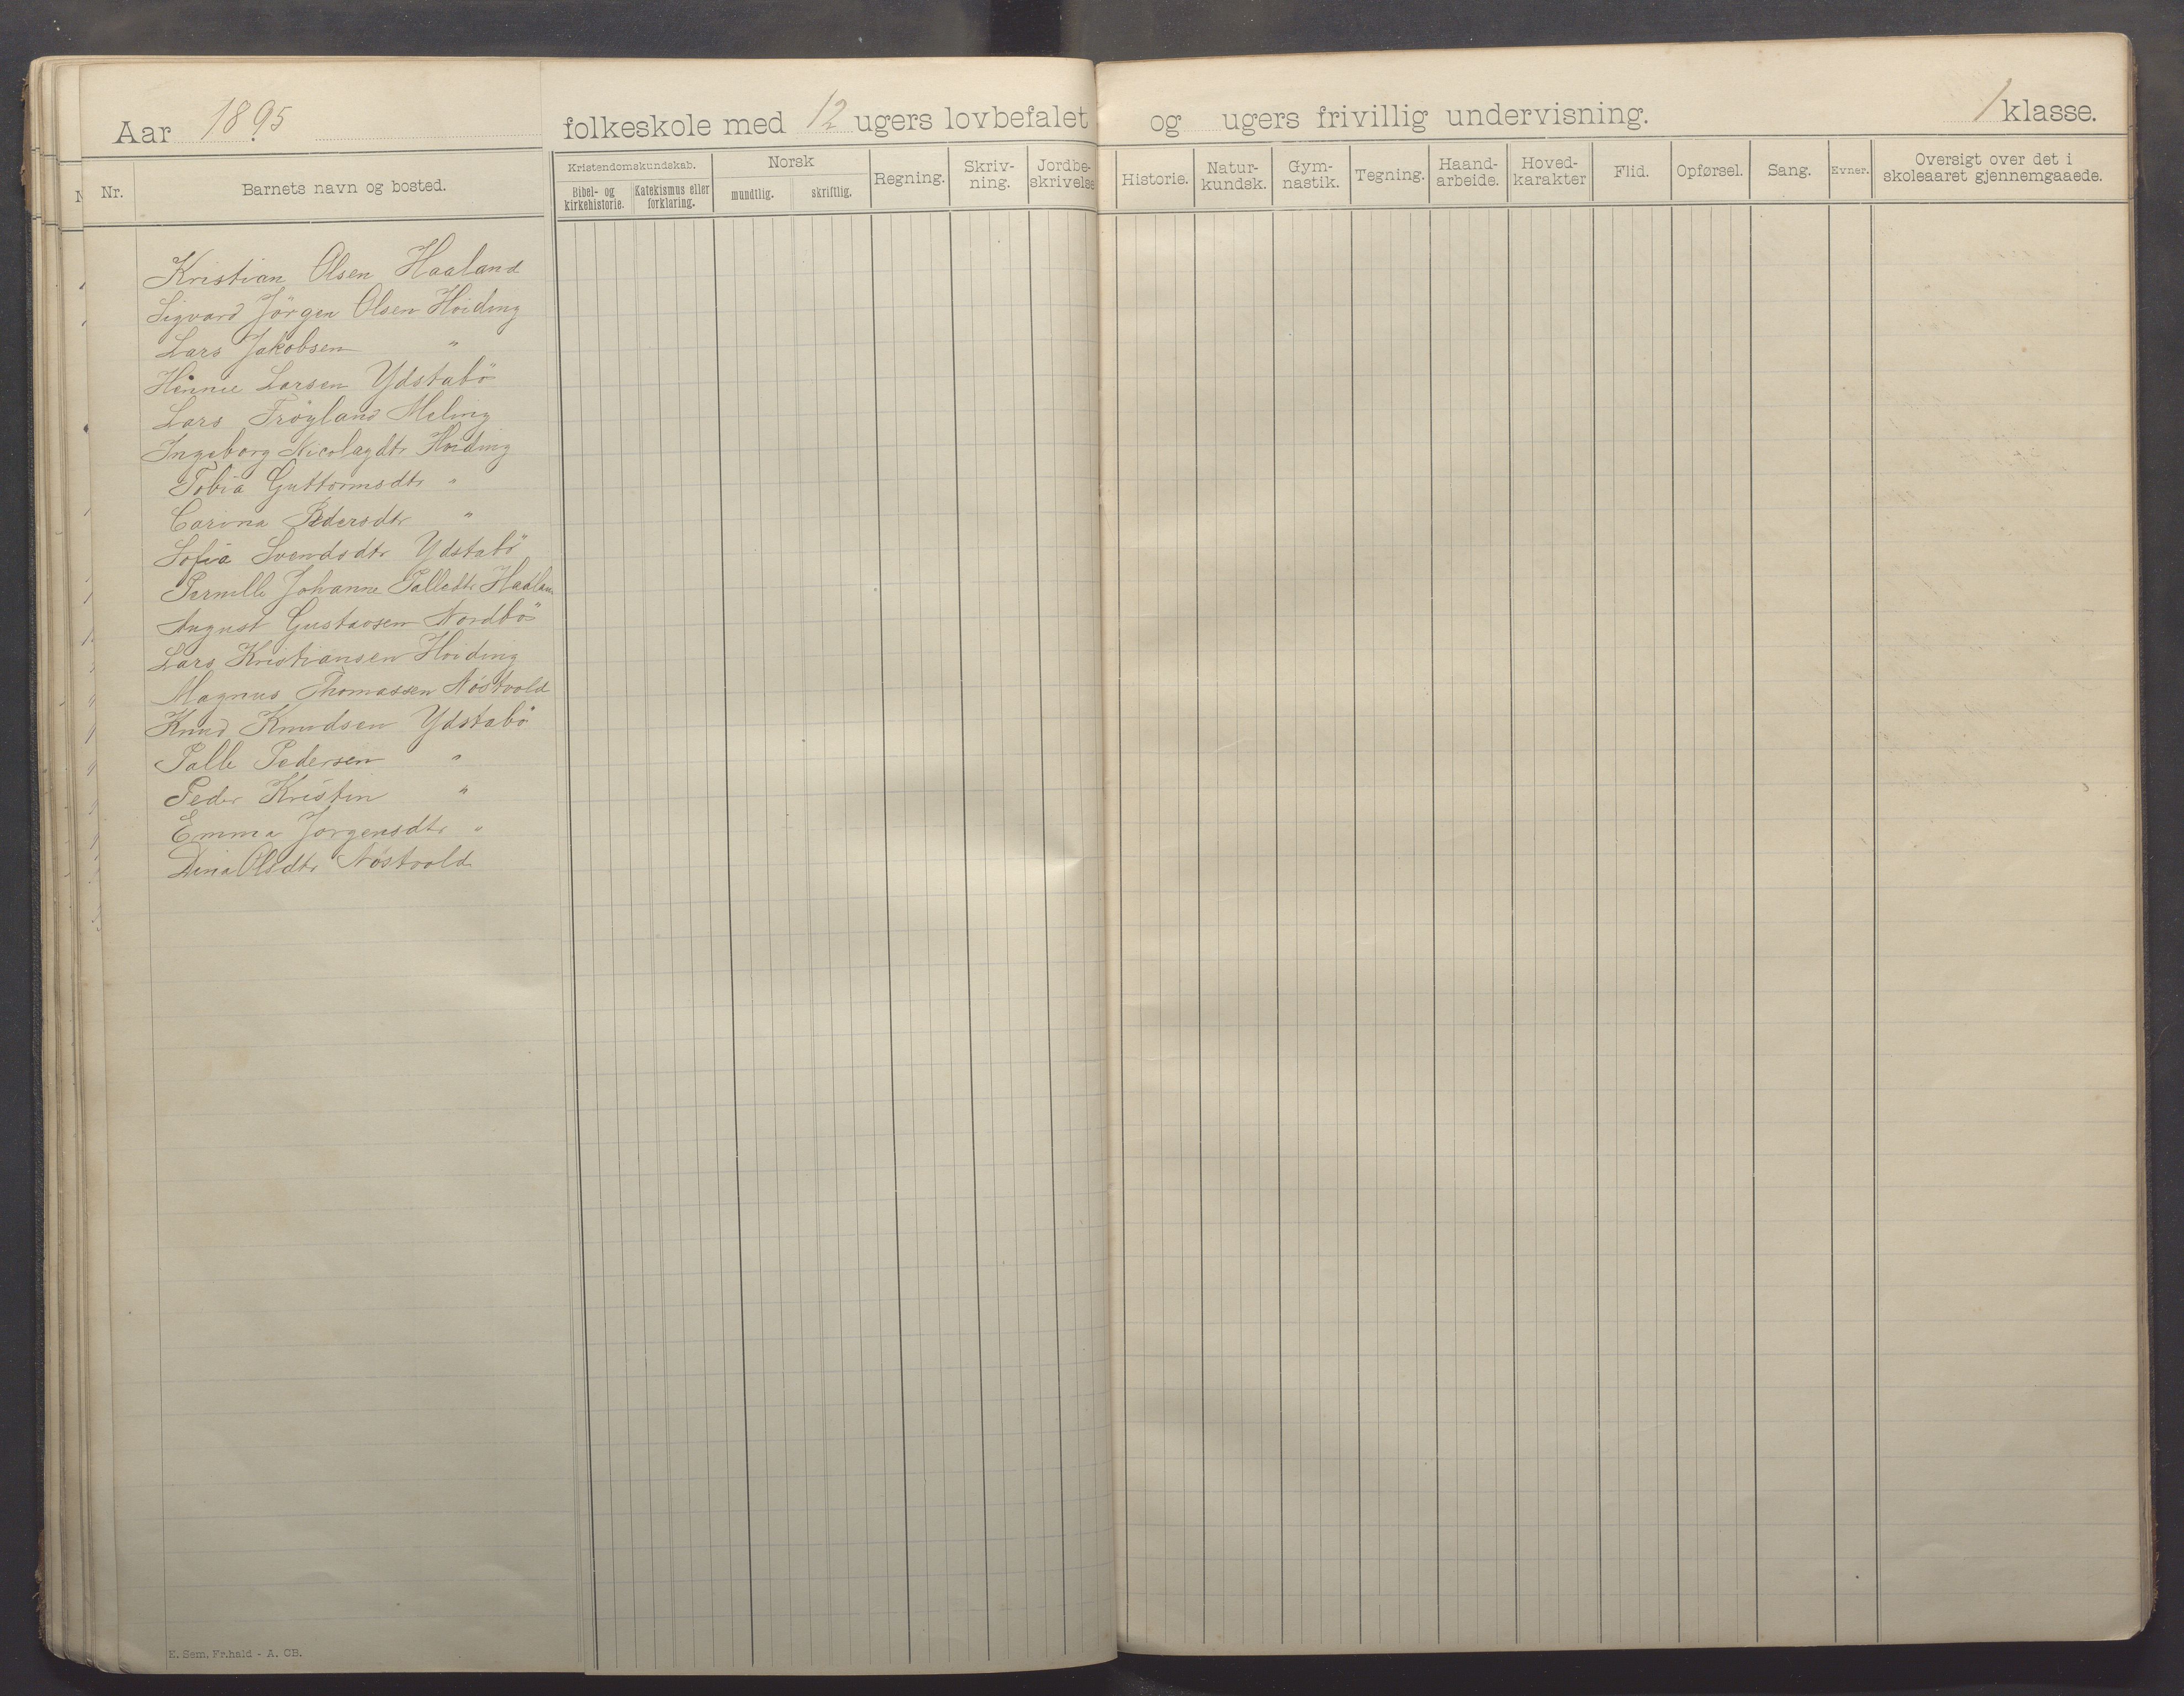 Aar 1895 folkeskole med 12 ugers lovbefalet og ugers frivillig undervisning. 1 klasse.
Nr. Barnets navn og bosted. Kristendomskundskab. Bibel- og kirkehistorie. Katekismus eller forklaring. Norsk mundtlig. skriftlig. Regning. Skriv-ning. Jordbe-skrivelse Historie. Natur-kundsk. Gym-nastik. Tegning. Haand-arbeide. Hoved-karakter Flid. Opførsel. Sang. Evner. Oversigt over det i skoleaaret gjennemgaaede.
Kristian Olsen Haaland
Sigvard Jörgen Olsen Hoiding
Lars Jakobsen "
Hennie Larsen Ydstabö
Lars Fröyland Meling
Ingeborg Nicolaydtr Hoiding
Tobia Guttormsdtr "
Carina Pedersdtr "
Sofia Svendsdtr Ydstabö
Pernille Johanne Palledtr Haaland
August Gustavsen Nordbö
Lars Kristiansen Hoiding
Magnus Thomassen Nöstvold
Knud Knudsen Ydstabö
Palle Pedersen "
Peder Kristin "
Emma Jorgensdtr "
Dina Olsdtr Nöstvold
E. Sem. Fr.hald - A. CB.